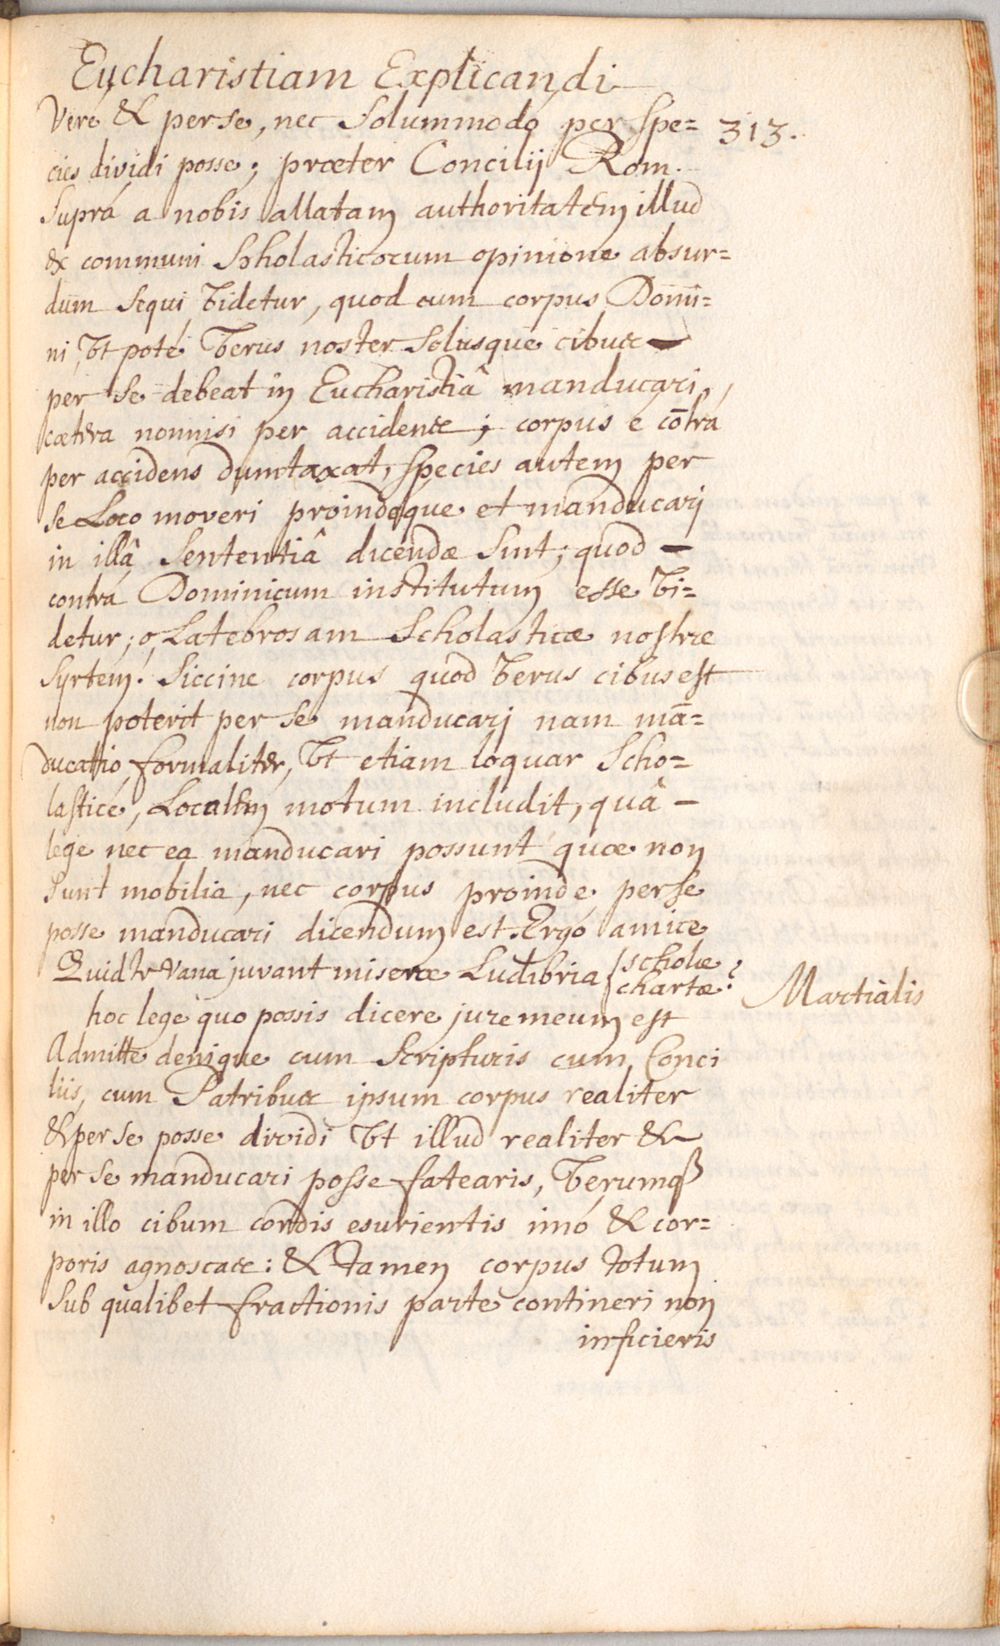 Eucharistiam Explicandi
Veré & per se, nec Solummodó per Spe= 313.
cies dividi posse; præter Concilij Rom.
Suprá a nobis allatam authoritatem illud
ex communi Scholasticorum opinione absur=
dum Sequi videtur, quod cum corpus Domi=
ni, vt poté verus noster Solusque cibus
per Se debeat in Euchari­stiâ manducari,
cætera nonnisi per accidens; corpus é cōtrá
per accidens dumtaxat, Species autem per
Se Loco moveri proindéque et manducari
in illâ Sententiâ dicendæ Sint; quod
contrá Dominicum institutum esse vi=
detur; o, Latebrosam Scholasticæ nostræ
Syrtem! Siccine corpus quod verus cibus est
non poterit per Se manducarj nam mā=
ducatio formaliter, vt etiam loquar Scho=
lasticé, Localem motum includit, quâ
lege nec ea manducari possunt quæ non
Sunt mobilia, nec corpus proinde per se
posse manducari dicendum est. Ergó amice
Quid te vana juvant miseræ Ludibria { scholæ
chartæ?
Martialis
hoc lege quo possis dicere jure meum est
Admitte denique cum Scripturis cum Conci
liis, cum Patribus ipsum corpus realiter
& per Se posse dividi vt illud realiter &
per Se manducari posse fatearis, verumq3
in illo cibum cordis esurientis imó & cor=
poris agnoscas: & tamen corpus totum
Sub qualibet fractionis parte contineri non
inficieris